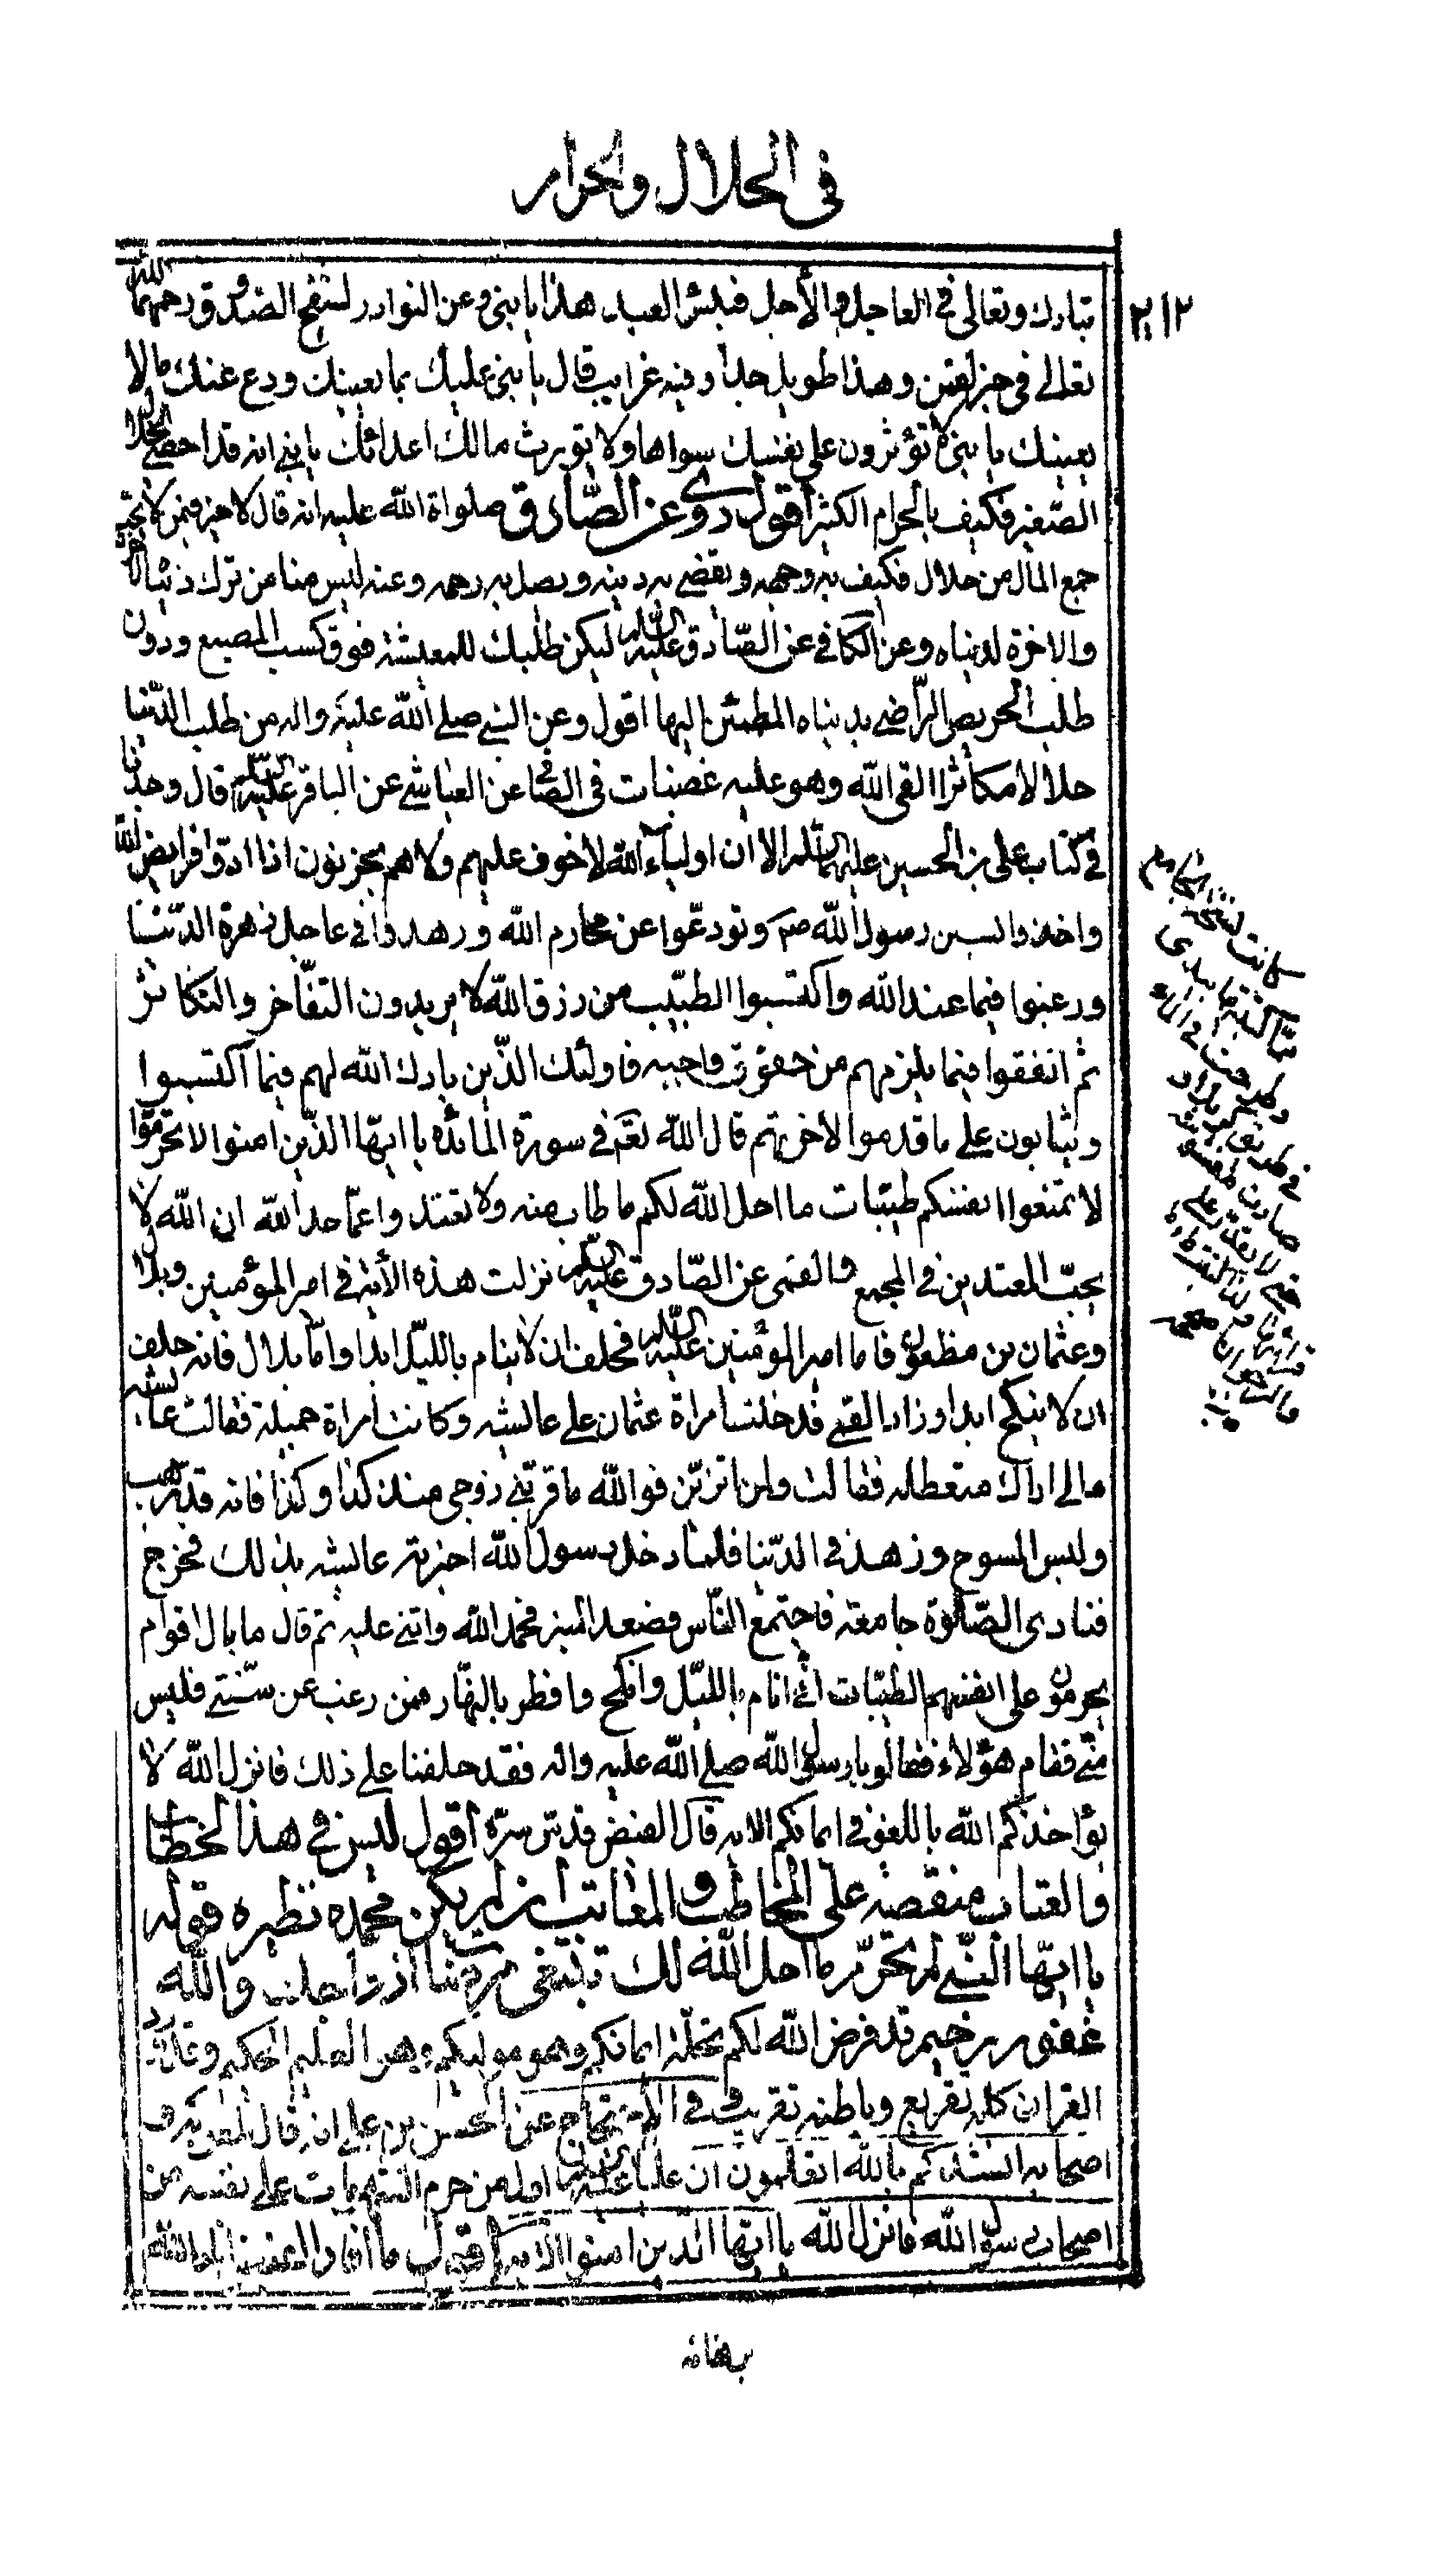 فى الحلال والحرام
٢١٢
تبارك وتعالى فى العاجل والآجل فبئس العبد هذا يا بنى وعن النوادر لشيخ الصدوق رحمهما الله
تعالى فى خبر لقمن وهذا طويل جدا وفيه غرايب قال يا بنى عليك بما يعينك ودع عنك ما لا
يعينك يا بنى لا تؤثرون على نفسك سواها ولا تورث مالك اعدائك يا بنى انه قد احصى الحلال
الصغير فكيف بالحرام الكثير أقول روى عن الصادق صلواة الله عليه انه قال لا خير فيمن لا يحب
جمع المال من حلال فكيف به وجهه ويقضى به دينه ويصل به رحمه وعنه ليس منا من ترك دنياه لاخرته
والاخرة لدنياه وعن الكافى عن الصادق عليه السلام ليكن طلبك للمعيشة فوق كسب المضيع ودون
طلب الحريص الراضى بدنياه المطمئن اليها اقول وعن النبى صلى الله عليه واله من طلب الدنيا
حلالا مكاثرا القى الله وهو عليه غضبان فى الصافى عن العياشى عن الباقر عليه السلام قال وجدنا
فى كتاب على بن الحسين عليهما السلام الا ان اولياء الله لا خوف عليهم ولا هم يحزنون اذا ادوا فرايض الله
واخذوا بسنن رسول الله ص وتودعوا عن محارم الله وزهدوا فى عاجل زهرة الدنيا
ورغبوا فيما عند الله واكتسبوا الطيب من رزق الله لا يريدون التفاخر والتكاثر
ثم انفقوا فيما يلزمهم من حقوق واجبه فاولئك الذين بارك الله لهم فيما اكتسبوا
ويثابون على ما قدموا لاخرتهم قال الله تعم فى سورة المائده يا ايها الذين امنوا لا تحرموا
لا تمنعوا انفسكم طيبات ما احل الله لكم ما طاب منه ولا تعتدوا عما حد الله ان الله لا
يحب المعتدين فى المجمع والقمى عن الصادق عليه السلام نزلت هذه الآية فى امير المؤمنين وبلال
وعثمان بن مظعون فاما امير المؤمنين عليه السلام فحلف ان لا ينام بالليل ابدا واما بلال فانه حلف
ان لا ينكح ابدا وزاد القمى فدخلت امراة عثمان على عائشه وكانت امراة جميلة فقالت عائشه
مالى اراك متعطله فقالت ولمن اتزين فوالله ما قربنى زوجى منذ كذا وكذا فانه قد ترهب
ولبس المسوح وزهد فى الدنيا فلما دخل رسول الله اخبرته عائشه بذلك فخرج
فنادى الصلوة جامعة فاجتمع الناس فصعد المنبر فحمد الله واثنى عليه ثم قال ما بال اقوام
يحرمون على انفسهم الطيبات انى انام بالليل وانكح وافطر بالنهار فمن رغب عن سنتى فليس
منى فقام هؤلاء فقالوا يا رسول الله صلى الله عليه واله فقد حلفنا على ذلك فانزل الله لا
يؤاخذكم الله باللغو فى ايمانكم الايه قال الفيض قدس سره أقول ليس فى هذا الخطاب
والعتاب منقصة على المخاطب والمعاتب ان لم يكن محمده نظيره قوله
يا ايها النبى لم تحرم ما احل الله لك تبتغى مرضات ازواجك والله
غفور رحيم قد فرض الله لكم تحلة ايمانكم وهو موليكم وهو العليم الحكيم وقد ورد
القران كله تقريع وباطنه تقريب وفى الاحتجاج عن الحسن بن على انه قال لمعويه و
اصحابه انشدكم بالله اتعلمون ان عليا عليه السلام اول من حرم الشهوات على نفسه من
اصحاب رسول الله فانزل الله يا ايها الذين امنوا الايه اقول ما افاد الفيض